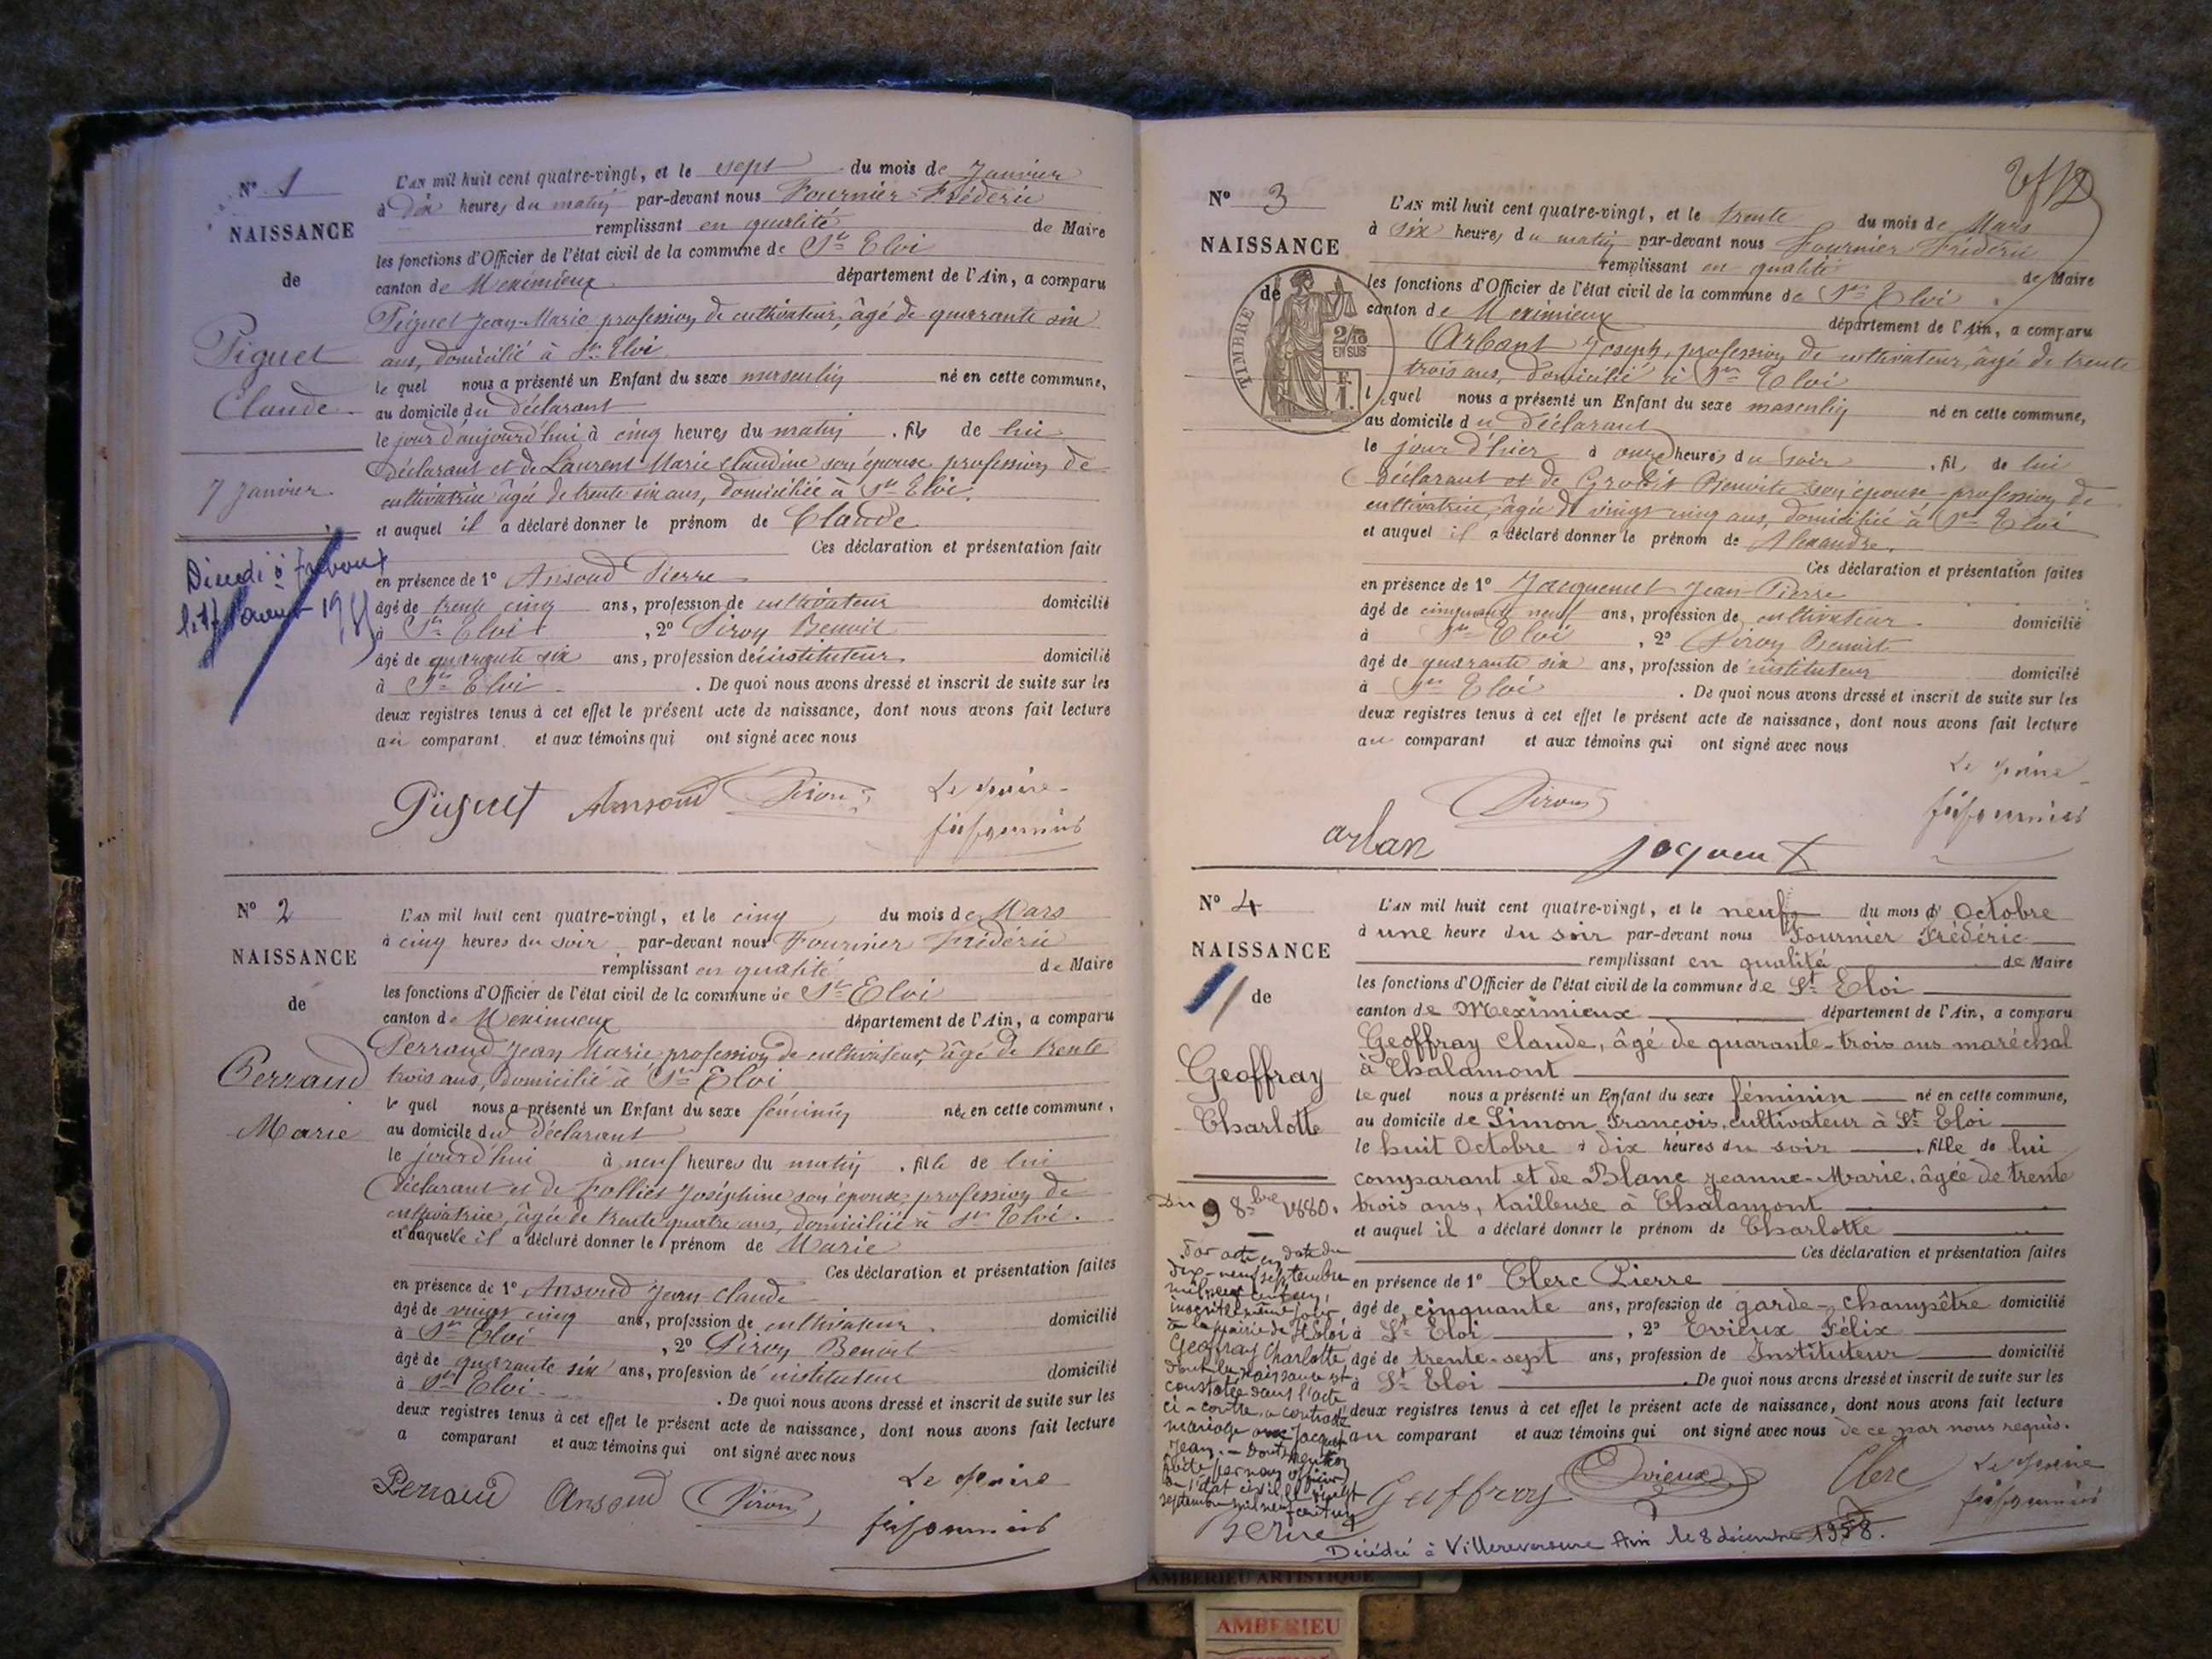 N° 1
NAISSANCE
de
Piguet
Claude
7 Janvier
Décédé à
L'AN mil huit cent quatre-vingt, et le sept du mois de Janvier
à dix heures du matin par-devant nous Fournier Frédéric
remplissant en qualité de Maire
les fonctions d'Officier de l'état civil de la commune de St Eloi
canton de Meximieux département de l'Ain, a comparu
Piguet Jean-Marie profession de cultivateur, âgé de quarante six
ans, domicilié à St Eloi
le quel nous a présenté un Enfant du sexe masculin né en cette commune,
au domicile du déclarant
le jour d'aujourd'hui à cinq heures du matin . fils de lui
déclarant et de Laurent Marie Claudine son épouse profession de
cultivatrice âgée de trente six ans, domiciliée à St Eloi.
et auquel il a déclaré donner le prénom de Claude
Ces déclaration et présentation faite
en présence de 1° Ansoud Pierre
âgé de trente cinq ans, profession de cultivateur domicilié
à St Eloi , 2° Piron Benoit
âgé de quarante six ans, profession de instituteur domicilié
à St Eloi . De quoi nous avons dressé et inscrit de suite sur les
deux registres tenus à cet effet le présent acte de naissance, dont nous avons fait lecture
au comparant et aux témoins qui ont signé avec nous
Piguet Ansoud Piron Le Maire
N° 2
NAISSANCE
de
Perraud
Marie
L'AN mil huit cent quatre-vingt, et le cinq du mois de Mars
à cinq heures du soir par-devant nous Fournier Frédéric
remplissant en qualité de Maire
les fonctions d'Officier de l'état civil de la commune de St Eloi
canton de Meximieux département de l'Ain, a comparu
Perraud Jean Marie profession de cultivateur, âgé de trente
trois ans, domicilié à St Eloi
le quel nous a présenté un Enfant du sexe féminin née en cette commune,
au domicile du déclarant
le jourd'hui à neuf heures du matin . fille de lui
déclarant et de Folliet Joséphine son épouse, profession de
cultivatrice, âgée de trente quatre ans, domiciliée à St Eloi.
et laquelle il a déclaré donner le prénom de Marie
Ces déclaration et présentation faites
en présence de 1° Ansoud Jean-Claude
âgé de vingt cinq ans, profession de cultivateur domicilié
à St Eloi , 2° Piron Benoit
âgé de quarante six ans, profession de instituteur domicilié
à St Eloi . De quoi nous avons dressé et inscrit de suite sur les
deux registres tenus à cet effet le présent acte de naissance, dont nous avons fait lecture
a comparant et aux témoins qui ont signé avec nous
Perraud Ansoud Piron Le Maire
N° 3
NAISSANCE
de
TIMBRE
2/10
EN SUS
F.
1.
L'AN mil huit cent quatre-vingt, et le trente du mois de Mars
à six heures du matin par-devant nous Fournier Frédéric
remplissant en qualité de Maire
les fonctions d'Officier de l'état civil de la commune de St Eloi
canton de Meximieux département de l'Ain, a comparu
Arbant Joseph, profession de cultivateur, âgé de trente
trois ans, domicilié à St Eloi
l quel nous a présenté un Enfant du sexe masculin né en cette commune,
au domicile du déclarant
le jour d'hier à onze heures du soir . fils de lui
déclarant et de Benoite son épouse profession de
cultivatrice, âgée de vingt cinq ans, domiciliée à St Eloi
et auquel il a déclaré donner le prénom de Alexandre.
Ces déclaration et présentation faites
en présence de 1° Jacquemet Jean-Pierre
âgé de cinquante neuf ans, profession de cultivateur domicilié
à St Eloi , 2° Piron Benoit
âgé de quarante six ans, profession de instituteur domicilié
à St Eloi . De quoi nous avons dressé et inscrit de suite sur les
deux registres tenus à cet effet le présent acte de naissance, dont nous avons fait lecture
au comparant et aux témoins qui ont signé avec nous
Piron Le Maire
arban
N° 4
NAISSANCE
de
Geoffray
Charlotte
Du 9 8bre 1880.
Par acte en date du
dix-neuf septembre
mil neuf cent un,
inscrit le même jour
à la mairie de St Eloi
Geoffray Charlotte
dont la naissance est
constatée dans l'acte
ci-contre, a contracté
mariage avec Jacquet
Jean. - Dont mention
faite par nous officier
de l'état civil le vingt
septembre mil neuf cent un
L'AN mil huit cent quatre-vingt, et le neuf du mois d'Octobre
à une heure du soir par-devant nous Fournier Frédéric
remplissant en qualité de Maire
les fonctions d'Officier de l'état civil de la commune de St Eloi
canton de Meximieux département de l'Ain, a comparu
Geoffray Claude, âgé de quarante-trois ans maréchal
à Chalamont
le quel nous a présenté un Enfant du sexe féminin né en cette commune,
au domicile de Simon François, cultivateur à St Eloi
le huit Octobre à dix heures du soir . fille de lui
comparant et de Blanc Jeanne-Marie, âgée de trente
trois ans, tailleuse à Chalamont
et auquel il a déclaré donner le prénom de Charlotte
Ces déclaration et présentation faites
en présence de 1° Clerc Pierre
âgé de cinquante ans, profession de garde-champêtre domicilié
à St Eloi , 2° Evieux Félix
âgé de trente-sept ans, profession de Instituteur domicilié
à St Eloi . De quoi nous avons dressé et inscrit de suite sur les
deux registres tenus à cet effet le présent acte de naissance, dont nous avons fait lecture
au comparant et aux témoins qui ont signé avec nous de ce par nous requis.
Geoffray Evieux Clerc Le Maire
Décédée à Villereversure Ain le 8 décembre 1958.
AMBERIEU ARTISTIQUE
AMBERIEU